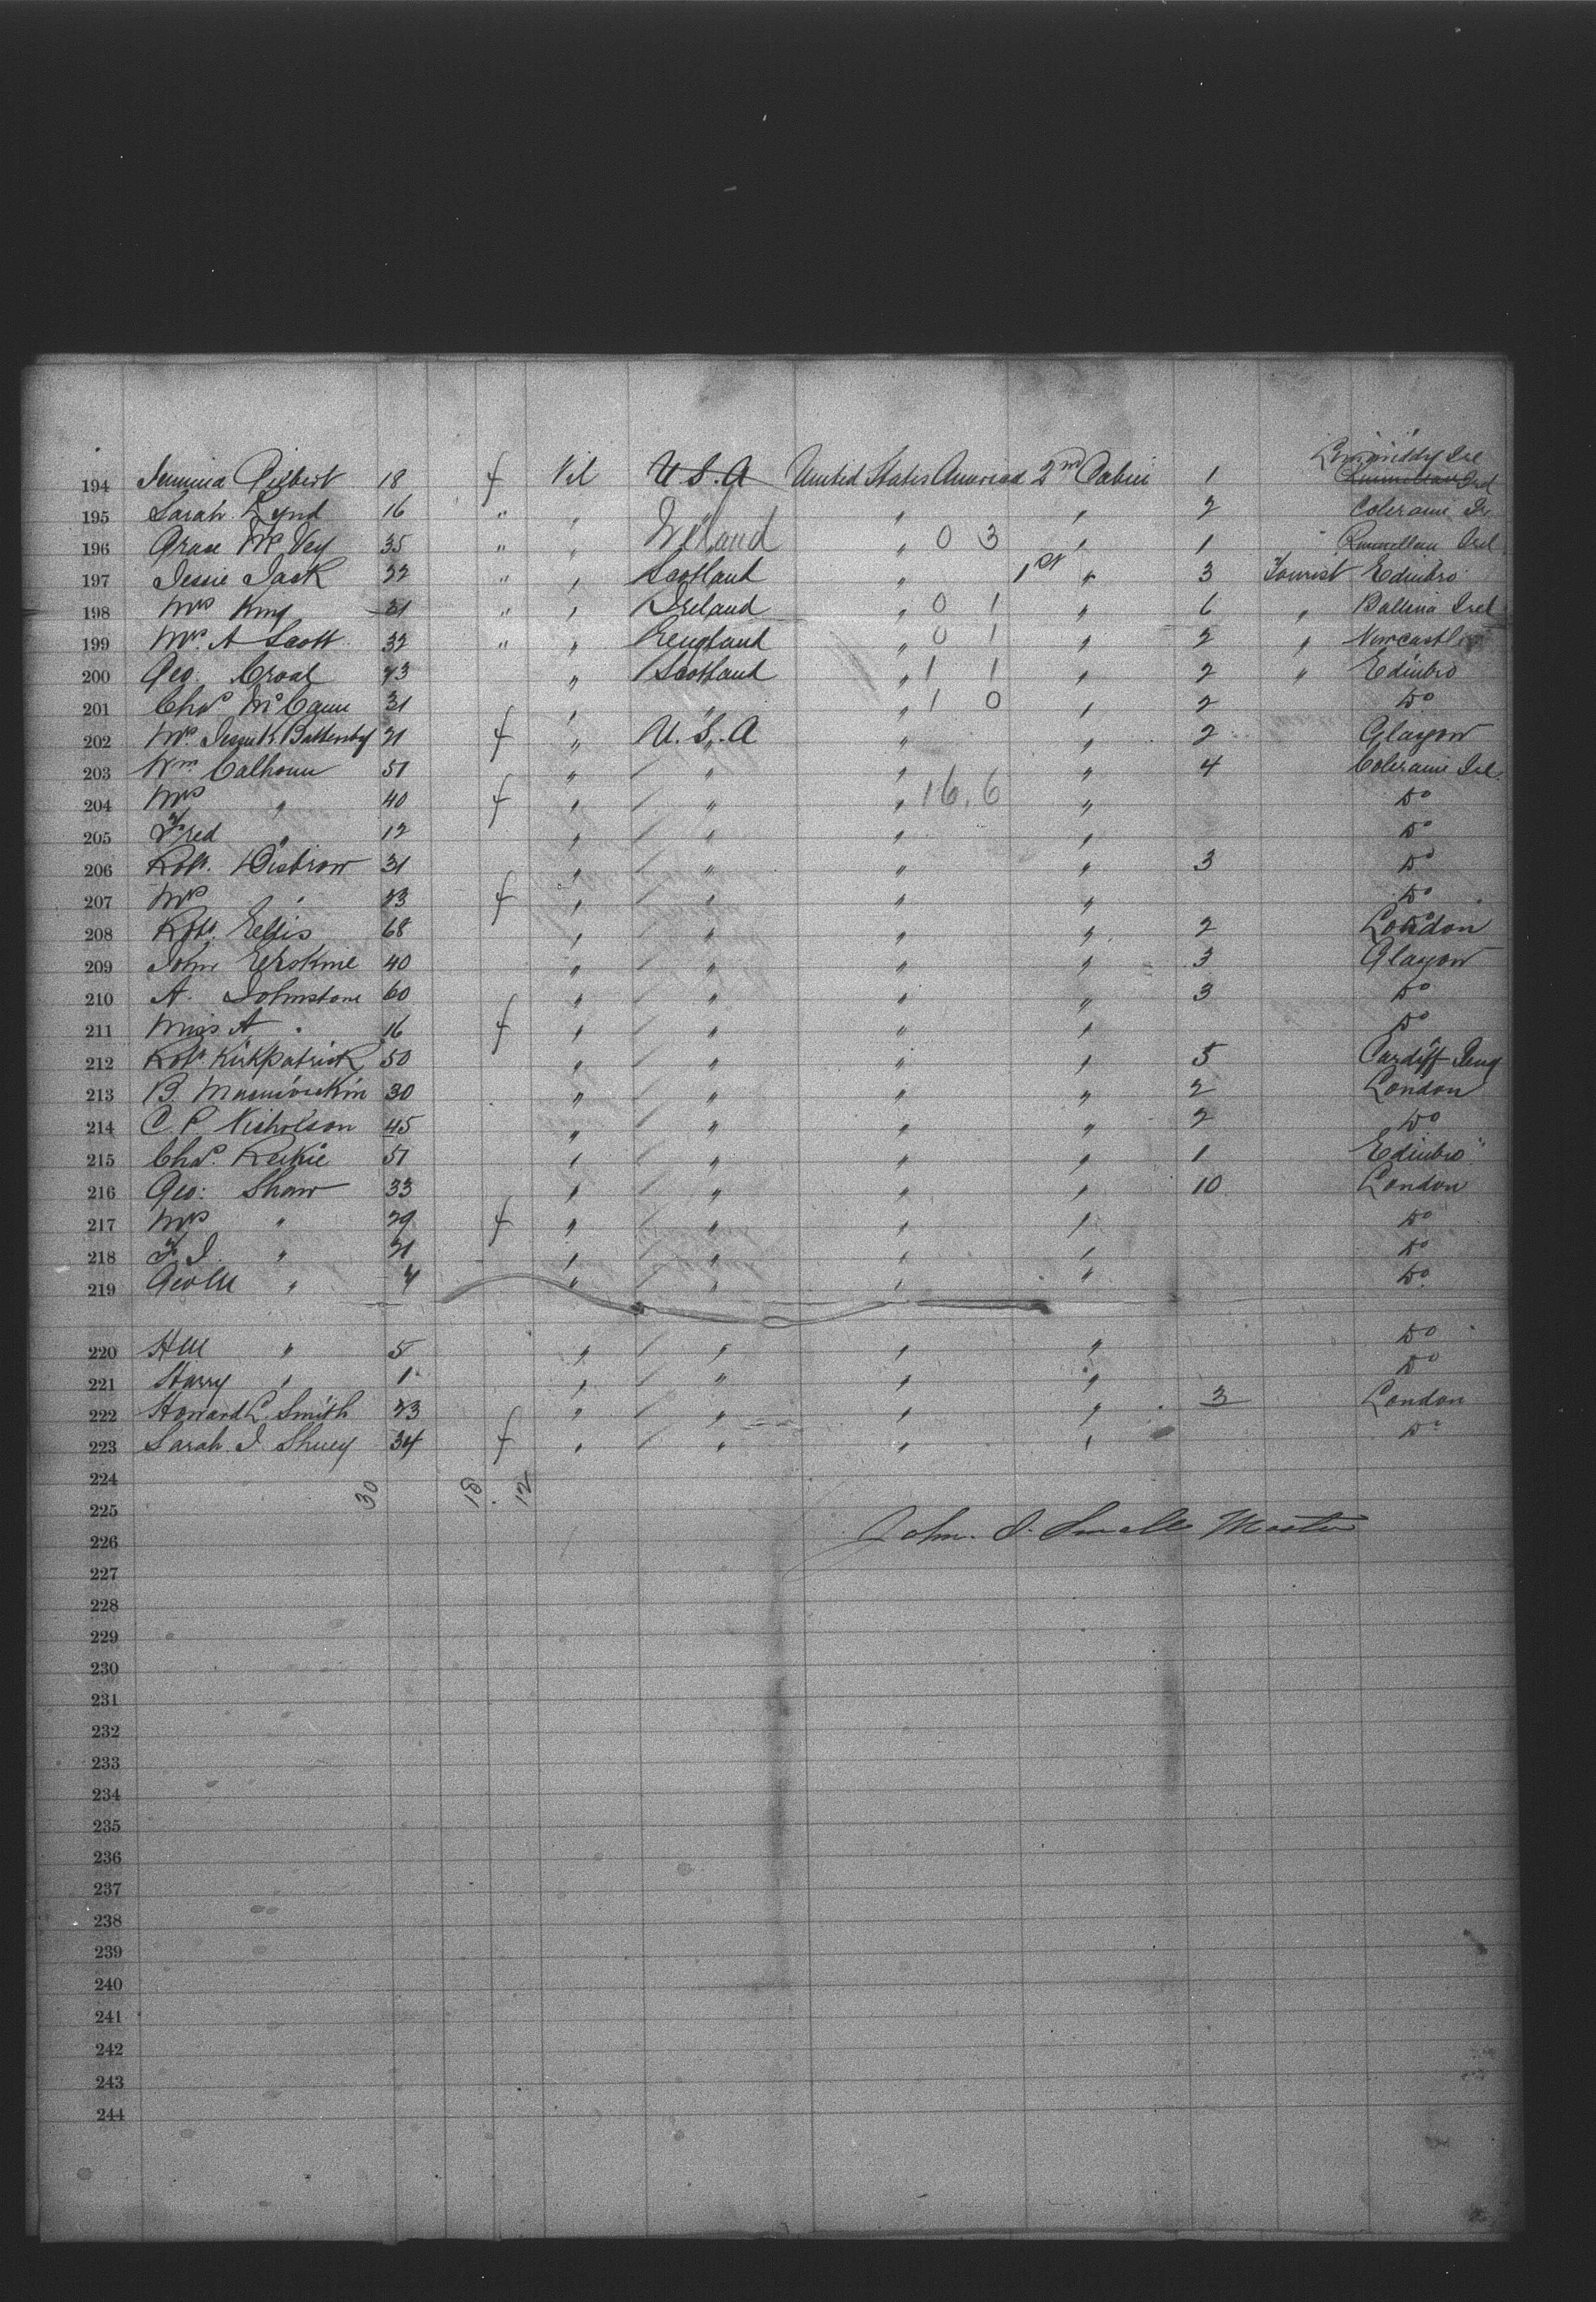 Limavady Ire
194 Jemima Gilbert 18 f Nil U.S.A United States America 2nd Cabin 1 Ireld
195 Sarah Lynd 16 " " " " 2 Coleraine Ir
196 Grace McVey 35 " " Ireland " 0 3 " 1 " Irel
197 Jessie Jack 22 " " Scotland " 1st " 3 Tourist Edinbro
198 Mrs King 31 " " Ireland " 0 1 " 6 " Ballina Ireld
199 Mrs. A Scott 32 " " England " 0 1 " 2 " Newcastle
200 Geo. Croal 43 " Scotland " 1 1 " 2 " Edinbro
201 Chas McCann 31 " " " 1 0 " 2 Do
202 Mrs. Jessie K. Battenby 21 f " U.S.A " " 2 Glasgow
203 Wm. Calhoun 51 " " " " 4 Coleraine Irel.
204 Mrs " 40 f " " " 16.6 " Do
205 Fred " 12 " " " " Do
206 Robt. Disbrow 31 " " " " 3 Do
207 Mrs " 23 f " " " " Do
208 Robt. Ellis 68 " " " " 2 London
209 John Erskine 40 " " " " 3 Glasgow
210 A. Johnstone 60 " " " " 3 Do
211 Miss A " 16 f " " " " Do
212 Robt. Kirkpatrick 50 " " " " 5 Cardiff Eng
213 B. 30 " " " " 2 London
214 C. P. Nicholson 45 " " " " 2 Do
215 Chas. Reikie 51 " " " " 1 Edinbro
216 Geo: Shaw 33 " " " " 10 London
217 Mrs " 29 f " " " " Do
218 F. J. " 21 " " " " Do
219 Geo W " 7 " " " " Do
220 H W " 5 " " " " Do
221 Harry " 1 " " " " Do
222 Howard L. Smith 23 " " " " 3 London
223 Sarah J. Shuey 34 f " " " " Do
224 30 18 12
225
226 John. S. Small Master
227
228
229
230
231
232
233
234
235
236
237
238
239
240
241
242
243
244